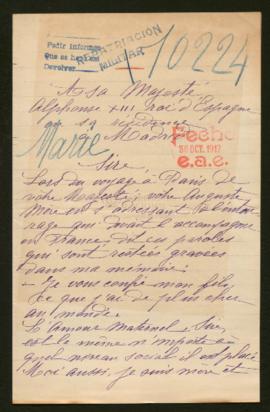 Pedir informe
que se haga en
Devolver
REPATRIACION
MILITAR
10224
A sa Majesté
Alphonse XIII roi d'Espagne
en sa résidence
Madrid
Marie
Fecha
30 OCT. 1917
e.a.e.
Sire,
Lors du voyage à Paris de
votre Majesté, votre Auguste
Mère en s'adressant à l'entou-
rage qui devait l'accompagner
en France dit ces paroles
qui sont restées gravées
dans ma mémoire:
- Je vous confie mon fils,
ce que j'ai de plus cher
au monde.
L'amour maternel, Sire,
est le même n'importe a
quel niveau social il est placé
Moi aussi, je suis mère et